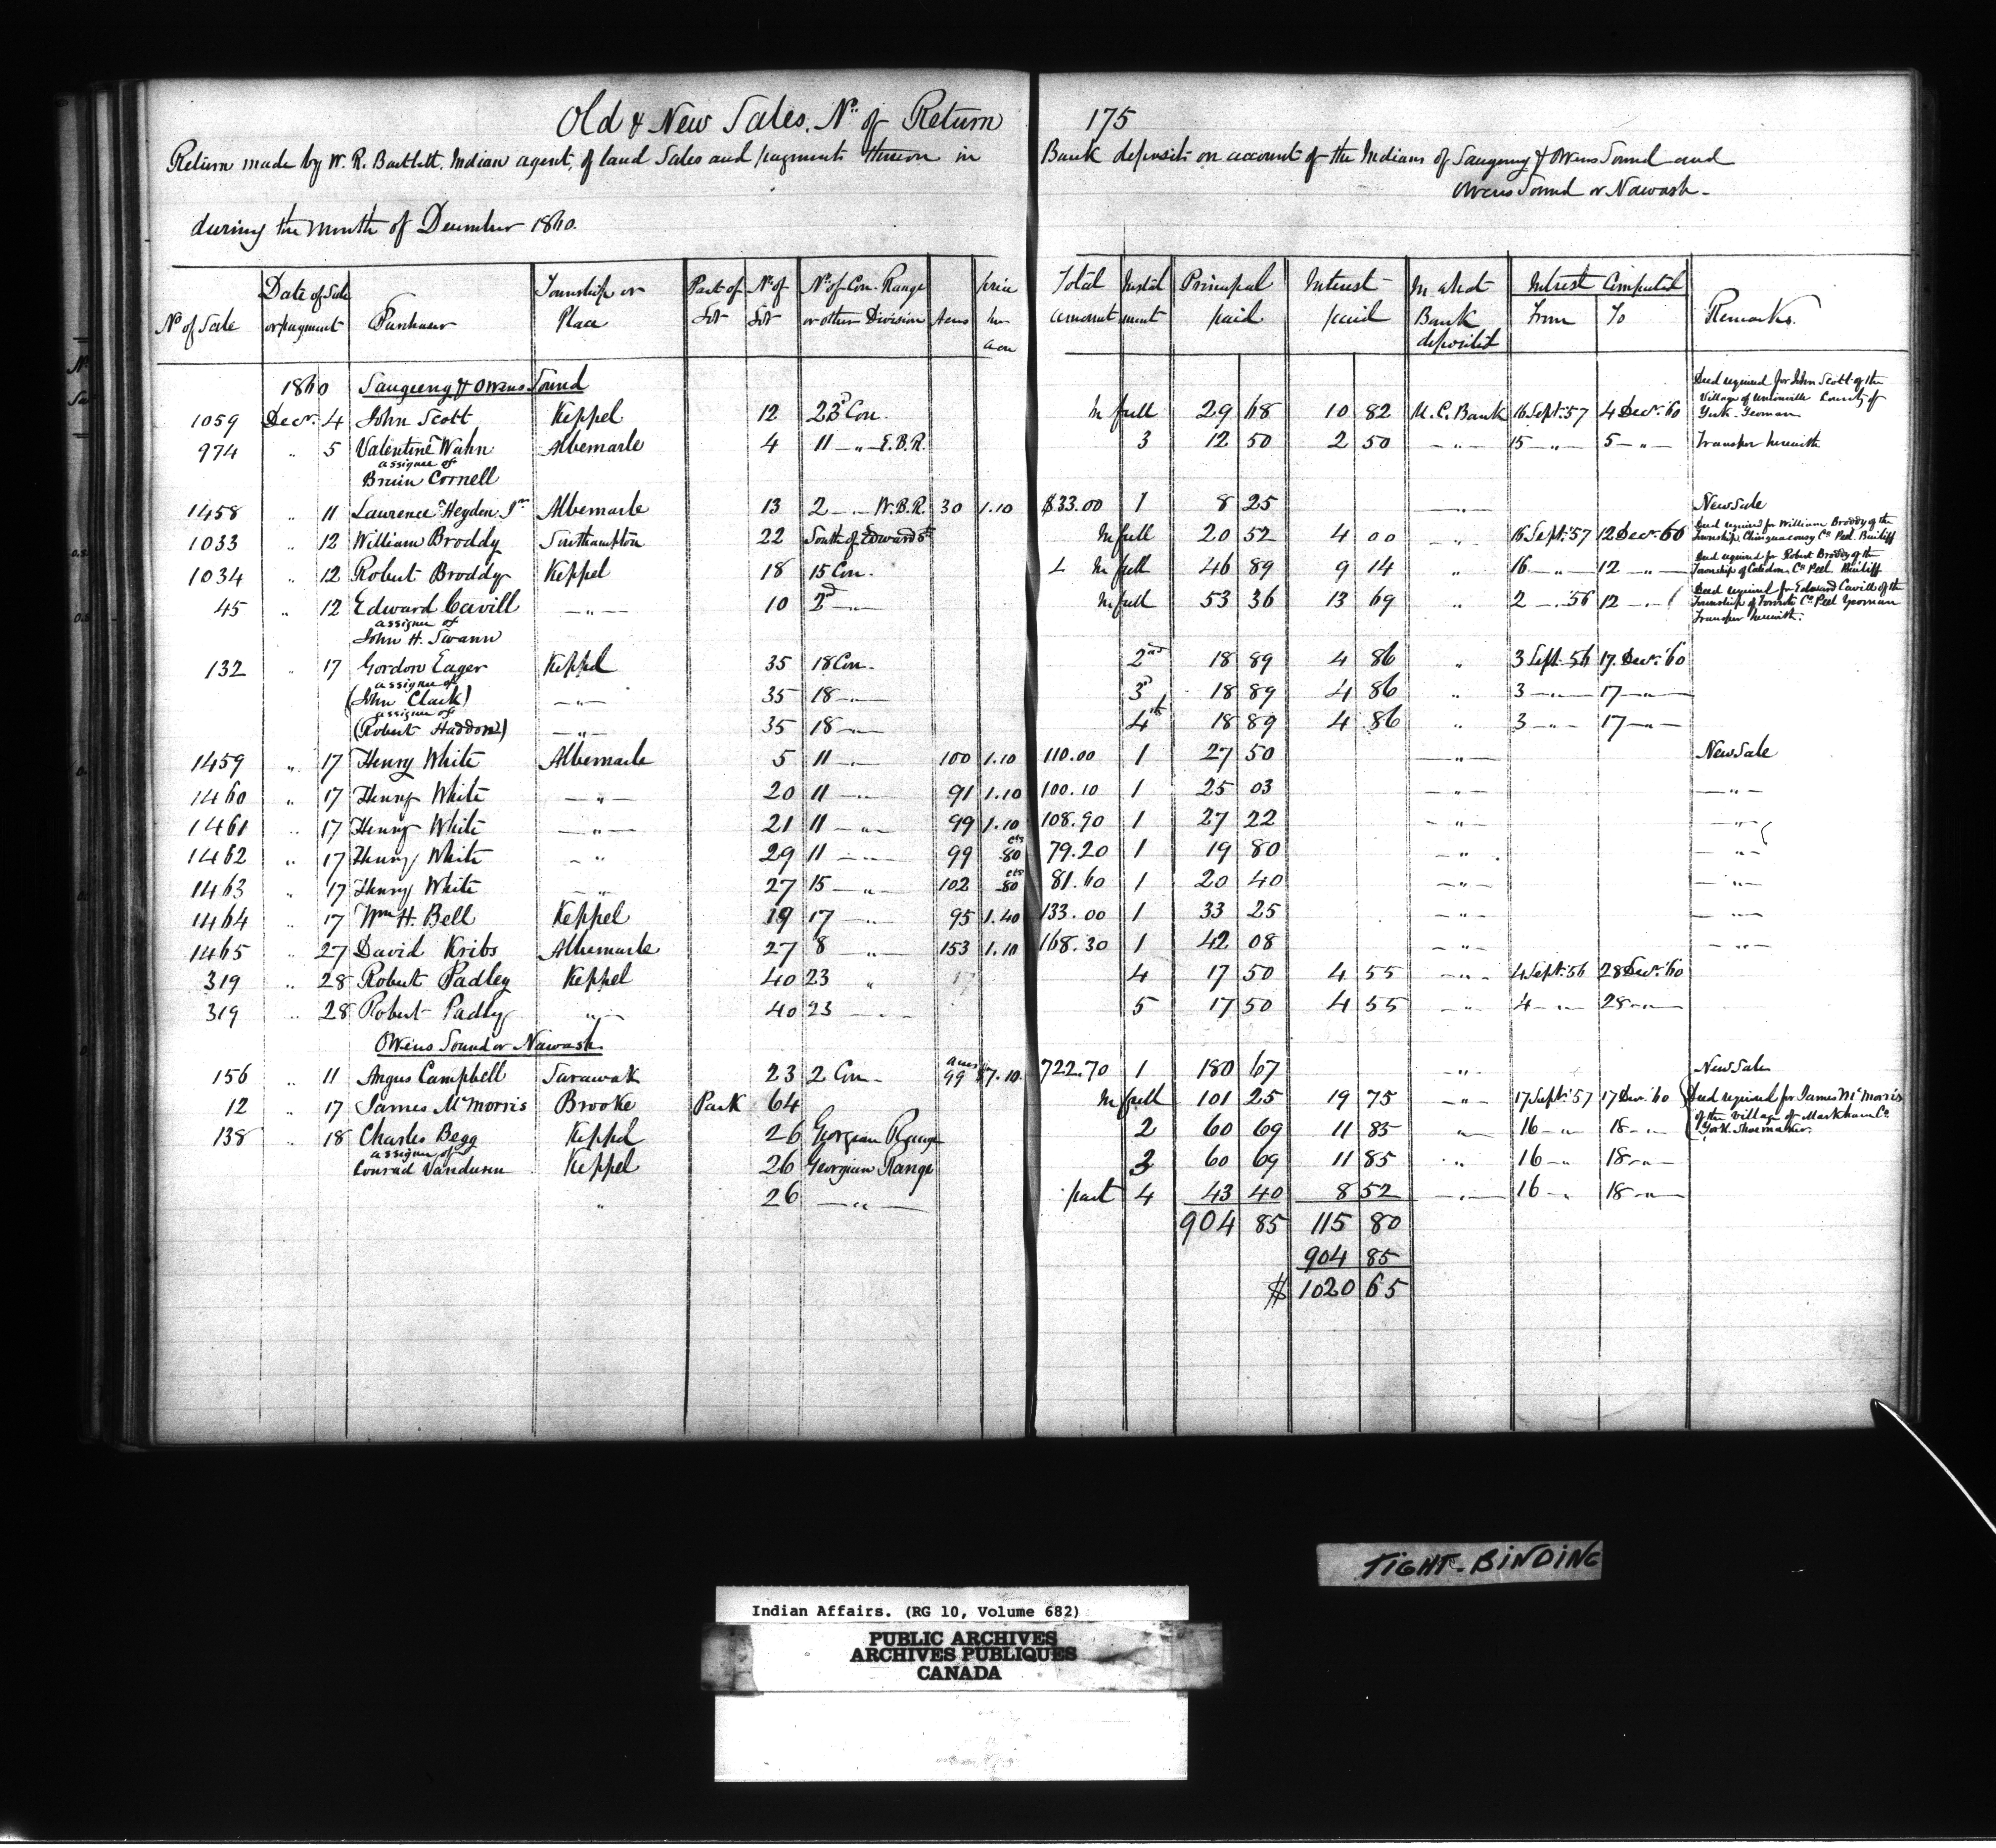 Old & New Sales. No. of Return 175
Return made by W. R. Bartlett, Indian agent, of land Sales and payments thereon in Bank deposits on account of the Indians of Saugeeng & Owens Sound and
Owens Sound or Nawash -
during the month of December 1860.
No of Sale | Date of Sale or payment | Purchaser | Township or Place | Part of Lot | No of Lot | No of Con. Range or other Division | Acres | price per acre | Total amount | Instal ment | Principal paid | Interest paid | In what Bank deposited | Interest Computed From | To | Remarks.
1860 Saugeeng & Owens Sound
1059 Decr. 4 John Scott Keppel 12 23d Con. In full 29 68 10 82 U. C. Bank 16 Sept. '57 4 Decr. '60 Deed required for John Scott of the Village of Unionville County of York Yeoman
974 " 5 Valentine Wahn Albemarle 4 11 - " - E.B.R. 3 12 50 2 50 - " - 15 - " - 5 - " - Transfer herewith
assignee of
Bruin Cornell
1458 " 11 Lawrence Heyden Jnr Albemarle 13 2 - " - W.B.R. 30 1.10 $33.00 1 8 25 - " - New Sale
1033 " 12 William Broddy Southampton 22 South of Edward St In full 20 52 4 00 - " - 16 Sept. '57 12 Decr. 60 Deed required for William Broddy of the Township Chinguacousy Co Peel. Bailiff
1034 " 12 Robert Broddy Keppel 18 15 Con. In full 46 89 9 14 " 16 - " - 12 - " - Deed required for Robert Broddy of the Township of Caledon Co Peel Bailiff
45 " 12 Edward Cavill - " - 10 2d - " - In full 53 36 13 69 " 2 - " '56 12 - " - Deed required for Edward Cavill of the Township of Toronto Co Peel Yeoman Transfer herewith.
assignee of
John H. Swann
132 " 17 Gordon Eager Keppel 35 18 Con. 2nd 18 89 4 86 " 3 Sept. 56 17 Decr. '60
assignee of
(John Clark) - " - 35 18 - " - 3d 18 89 4 86 " 3 - " - 17 - " -
assignee of
(Robert Haddon) - " - 35 18 - " - 4th 18 89 4 86 " 3 - " - 17 - " -
1459 " 17 Henry White Albemarle 5 11 - " - 100 1.10 110.00 1 27 50 - " - New Sale
1460 " 17 Henry White - " - 20 11 - " - 91 1.10 100.10 1 25 03 - " - - " -
1461 " 17 Henry White - " - 21 11 - " - 99 1.10 108.90 1 27 22 - " - - " -
1462 " 17 Henry White - " - 29 11 - " - 99 cts 80 79.20 1 19 80 - " - - " -
1463 " 17 Henry White - " - 27 15 - " 102 cts 80 81.60 1 20 40 - " - - " -
1464 " 17 Wm H. Bell Keppel 19 17 - " 95 1.40 133.00 1 33 25 - " - - " -
1465 " 27 David Kribs Albemarle 27 8 " 153 1.10 168.30 1 42 08 - " - - " -
319 " 28 Robert Padley Keppel 40 23 " 4 17 50 4 55 - " - 4 Sept. '56 28 Decr. '60
319 " 28 Robert Padley " - 40 23 - " - 5 17 50 4 55 - " - 4 - " - 28 - " -
Owens Sound or Nawash
156 " 11 Angus Campbell Sarawak 23 2 Con - acres 99 $7.10 722.70 1 180 67 " New Sale
12 " 17 James McMorris Brooke Park 64 In full 101 25 19 75 - " - 17 Sept. '57 17 Decr. '60 Deed required for James McMorris of the Village of Markham Co York. Shoemaker.
138 " 18 Charles Begg Keppel 26 Georgian Range 2 60 69 11 85 " 16 - " 18 - " -
assignee of
Conrad Vandusen Keppel 26 Georgian Range 3 60 69 11 85 " 16 - " 18 - " -
" 26 - " - part 4 43 40 8 52 - " - 16 - " 18 - " -
904 85 115 80
904 85
$ 1020 65
TIGHT-BINDING
Indian Affairs. (RG 10, Volume 682)
PUBLIC ARCHIVES
ARCHIVES PUBLIQUES
CANADA